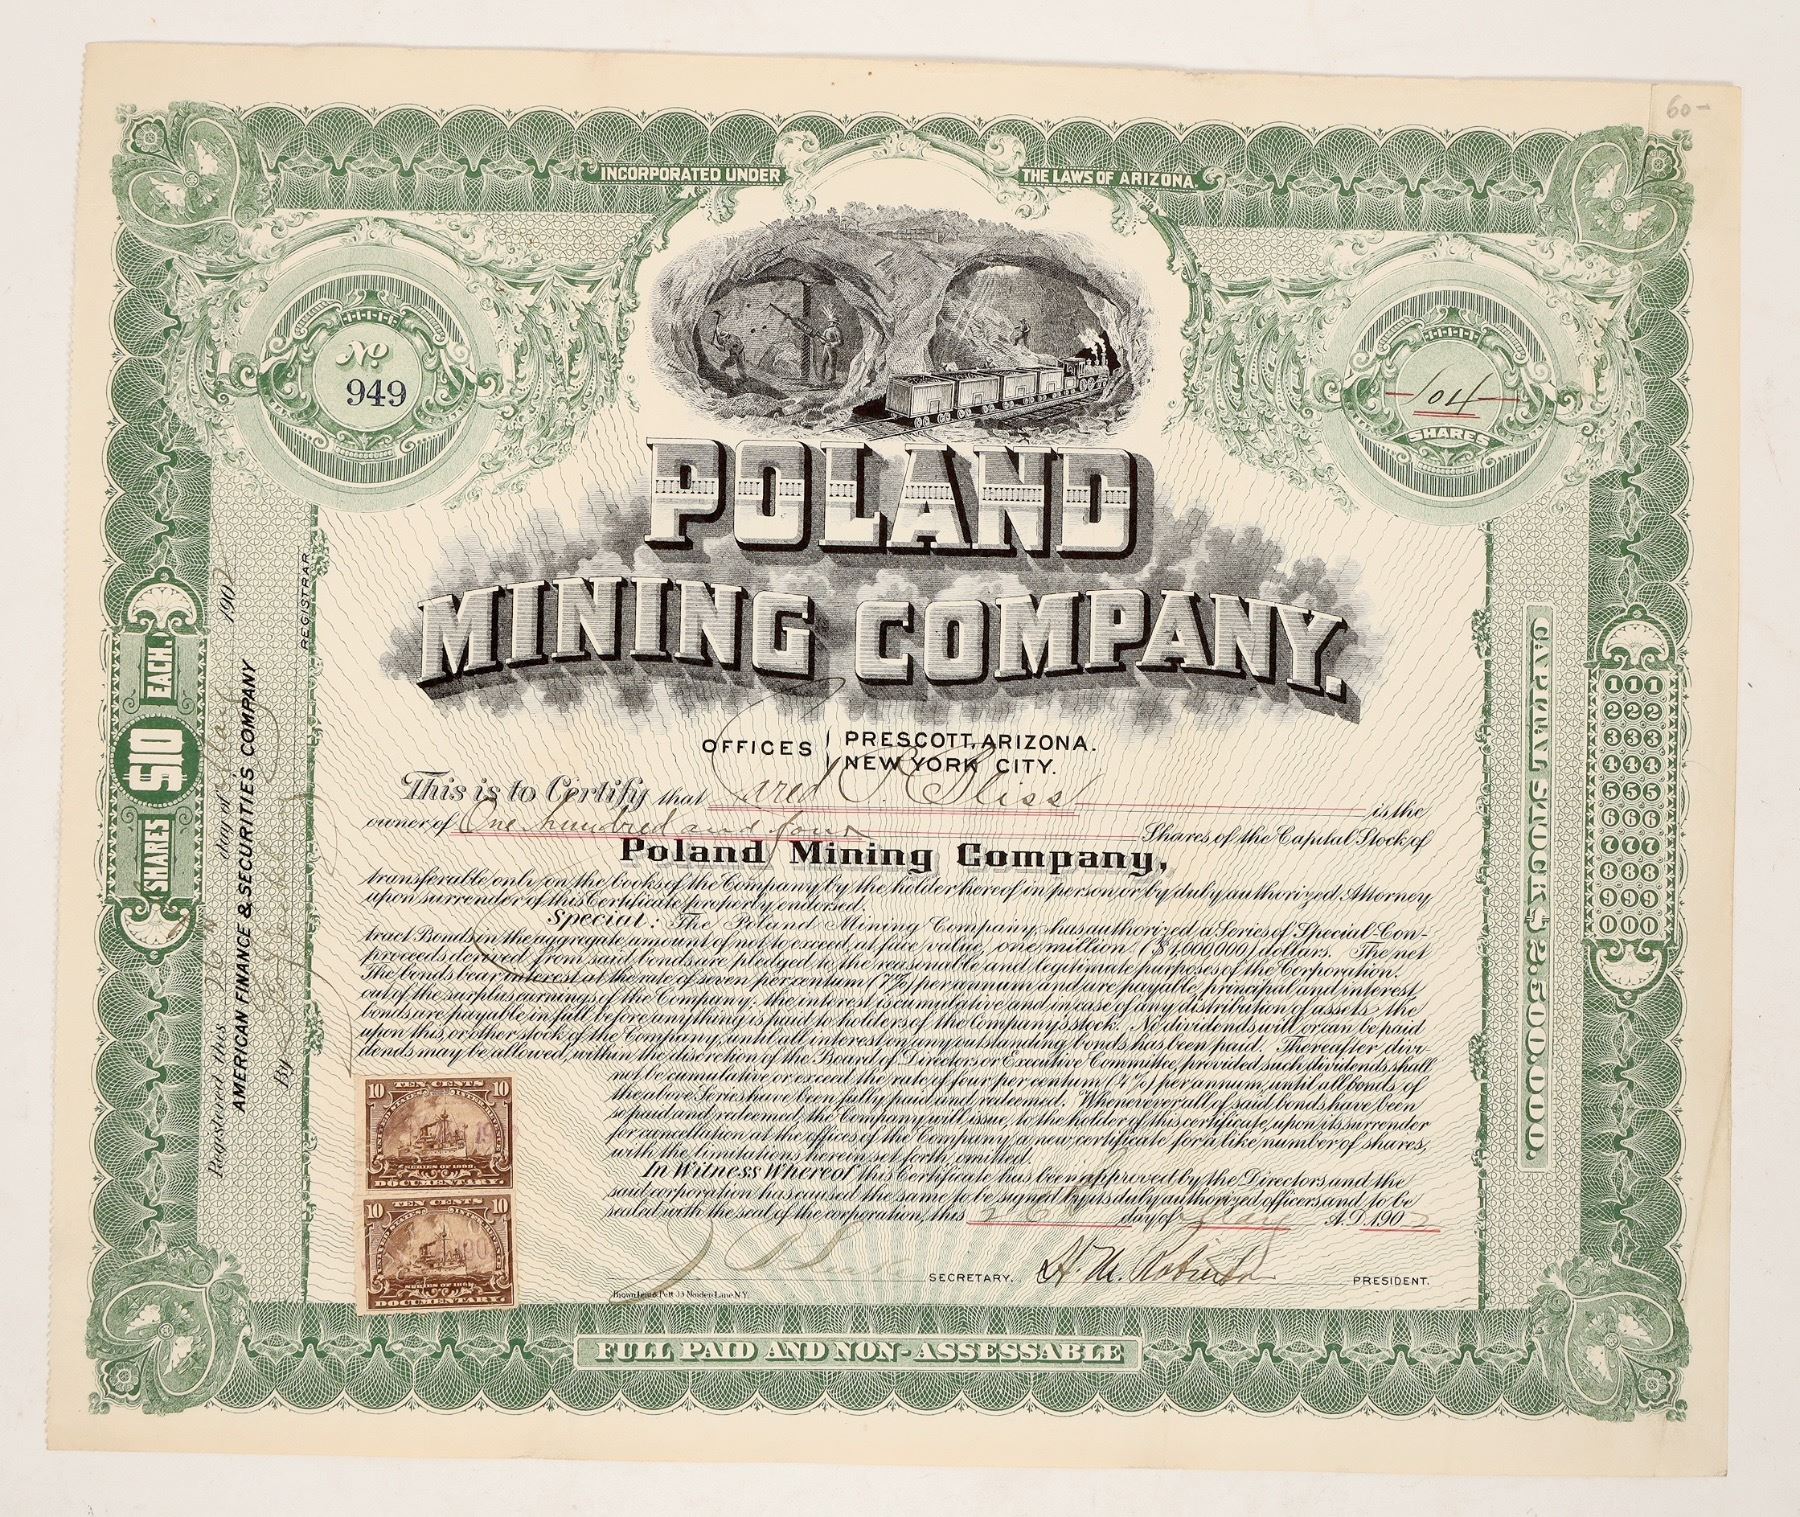 60-
INCORPORATED UNDER THE LAWS OF ARIZONA.
No.
949
104
SHARES
POLAND
MINING COMPANY.
OFFICES PRESCOTT, ARIZONA.
NEW YORK CITY.
This is to Certify that P. Bliss is the
owner of One hundred and four Shares of the Capital Stock of
Poland Mining Company,
transferable only on the books of the Company by the holder hereof in person or by duly authorized Attorney
upon surrender of this Certificate properly endorsed.
Special: The Poland Mining Company, has authorized a Series of Special Con-
tract Bonds in the aggregate amount of not to exceed, at face value, one million ($1,000,000) dollars. The net
proceeds derived from said bonds are pledged to the reasonable and legitimate purposes of the Corporation.
The bonds bear interest at the rate of seven per centum (7%) per annum and are payable, principal and interest
out of the surplus earnings of the Company; the interest is cumulative and in case of any distribution of assets, the
bonds are payable in full before anything is paid to holders of the Company's stock. No dividends will or can be paid
upon this, or other stock of the Company, until all interest on any outstanding bonds has been paid. Thereafter divi-
dends may be allowed, within the discretion of the Board of Directors or Executive Committee, provided such dividends shall
not be cumulative or exceed the rate of four per centum (4%) per annum, until all bonds of
the above Series have been fully paid and redeemed. Whenever all of said bonds have been
so paid and redeemed, the Company will issue, to the holder of this certificate, upon its surrender
for cancellation at the offices of the Company, a new certificate for a like number of shares,
with the limitations herein set forth, omitted.
In Witness Whereof this Certificate has been approved by the Directors and the
said corporation has caused the same to be signed by its duly authorized officers and to be
sealed with the seal of the corporation, this 26 day of May A.D. 1902
SECRETARY. H. M. Robinson PRESIDENT.
Brown Lent & Pett 33 Maiden Lane N.Y.
FULL PAID AND NON-ASSESSABLE
SHARES $10 EACH.
Registered this 26 day of May 1902
AMERICAN FINANCE & SECURITIES COMPANY
By REGISTRAR
CAPITAL STOCK, $2,500,000.
111
222
333
444
555
666
777
888
999
000
10 TEN CENTS 10
UNITED STATES INTERNAL REVENUE
SERIES OF 1898
DOCUMENTARY.
10 TEN CENTS 10
UNITED STATES INTERNAL REVENUE
SERIES OF 1898
DOCUMENTARY.